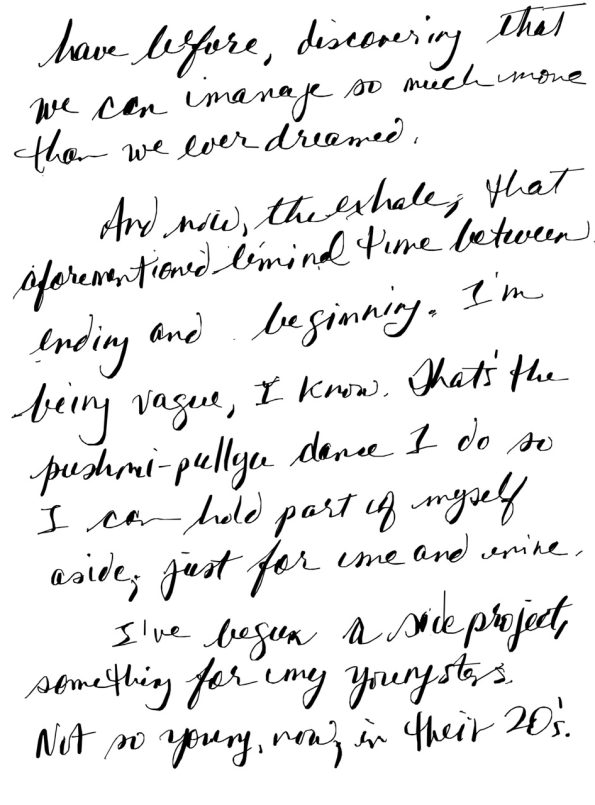 have before, discovering that
we can manage so much more
than we ever dreamed.
And now, the exhale, that
aforementioned liminal time between
ending and beginning. I'm
being vague, I know. That's the
pushmi-pullyu dance I do so
I can hold part of myself
aside, just for me and mine.
I've begun a side project,
something for my youngsters.
Not so young, now, in their 20's.